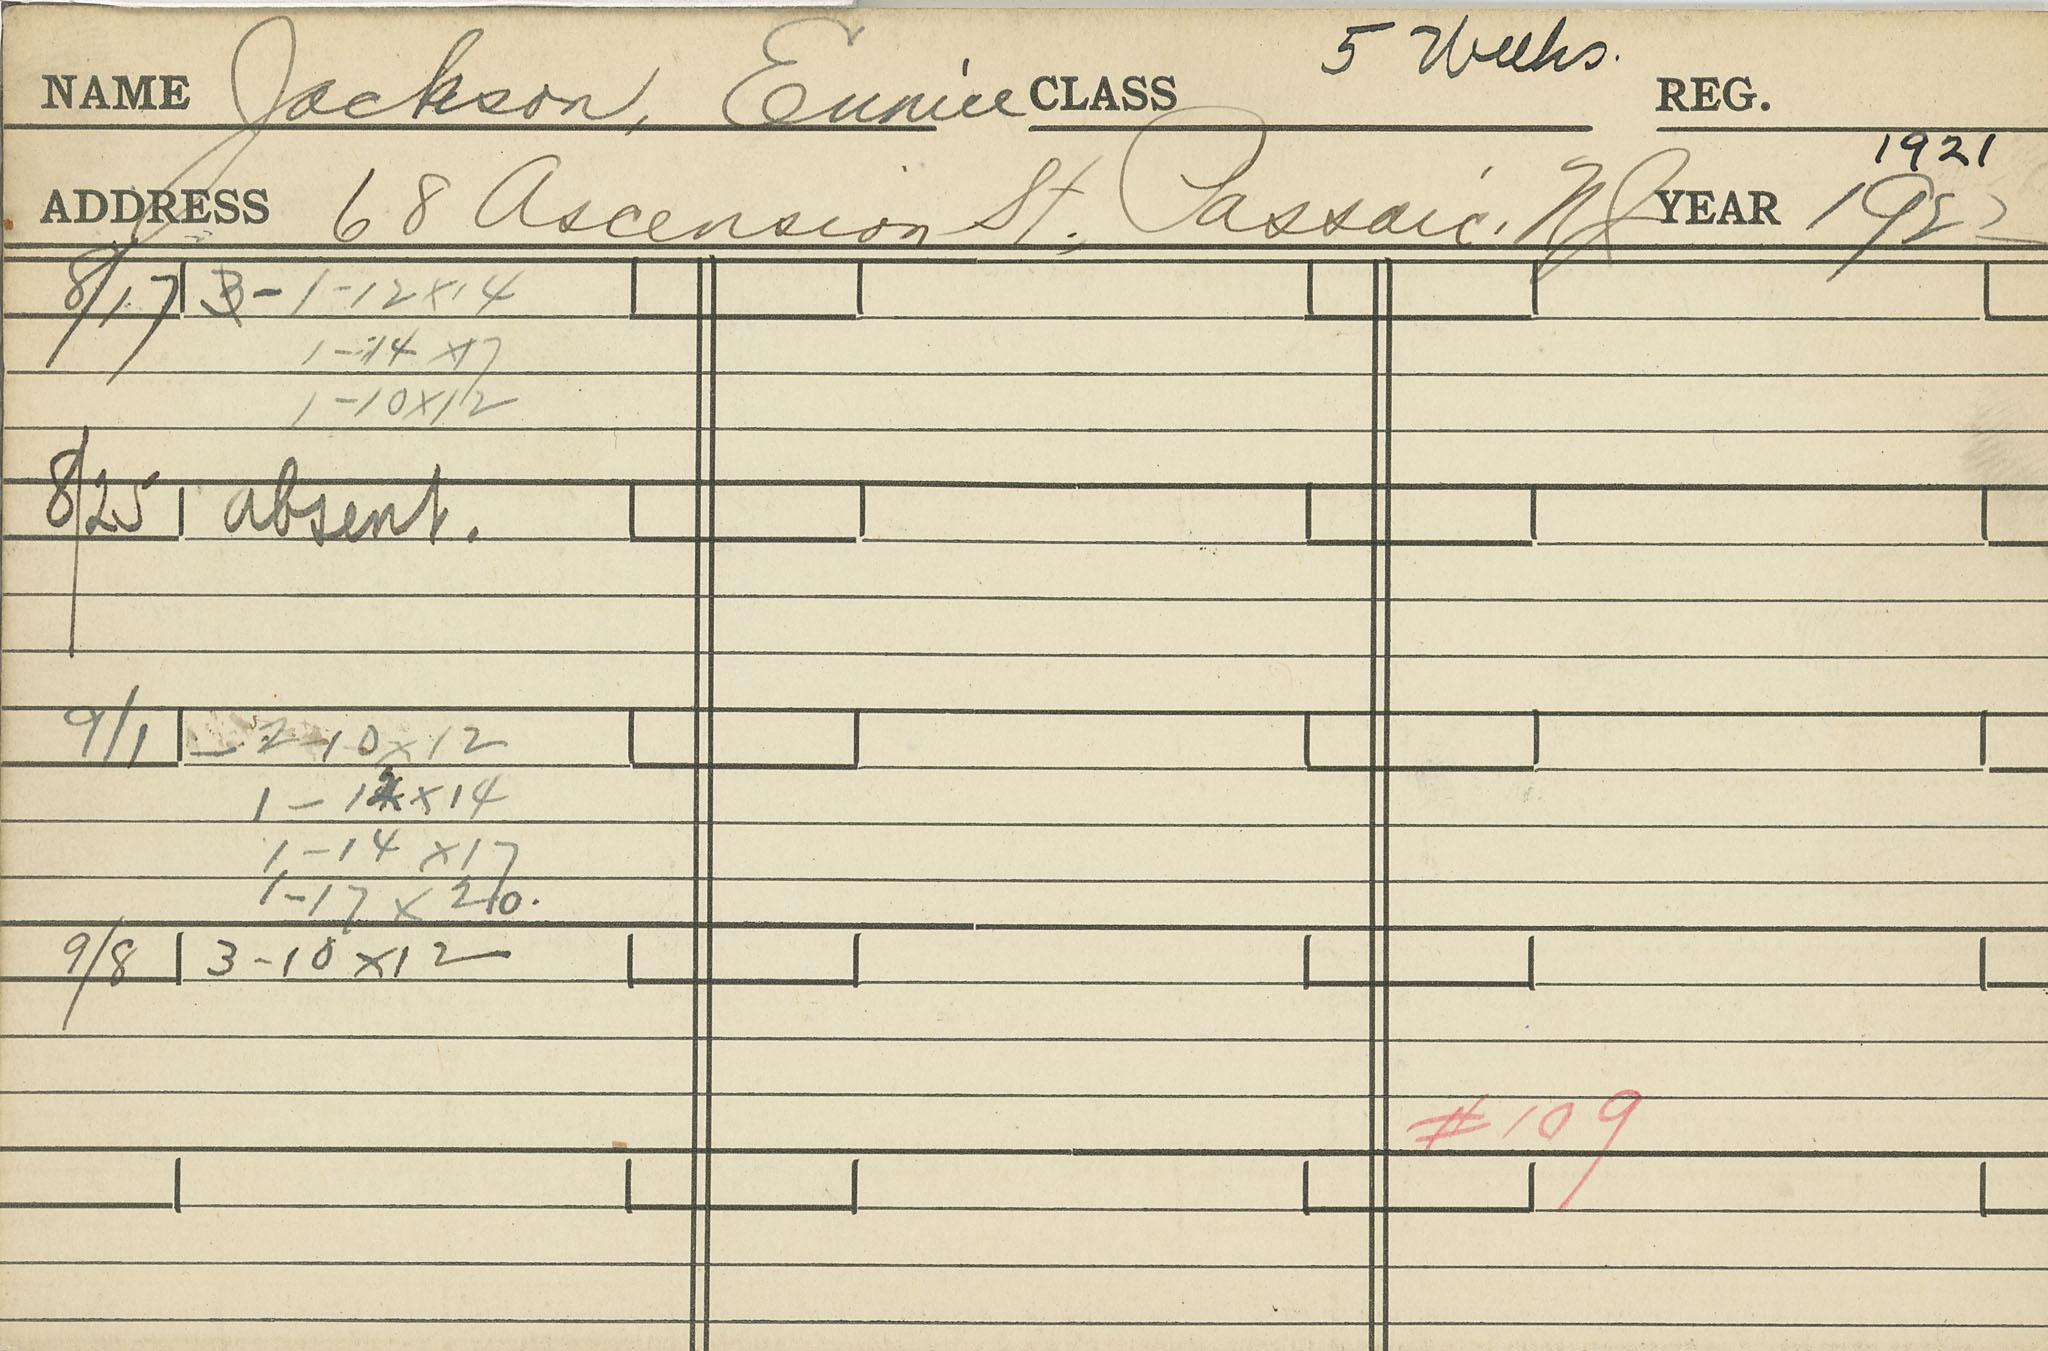 5 Weeks.
NAME Jackson, Eunice CLASS REG.
1921
ADDRESS 68 Ascension St. Passaic. NJ YEAR 1922
8/17 3 - 1-12x14
1-14x17
1-10x12
8/25 absent.
9/1 - 2-10x12
1-12x14
1-14x17
1-17x20.
9/8 3-10x12
#109